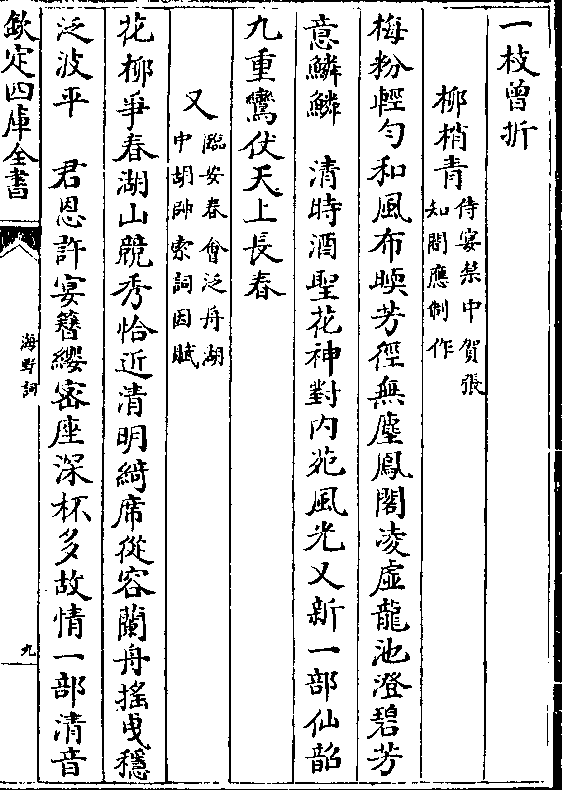 一枝曾折
柳梢青侍宴禁中賀張
知閤應制作
梅粉輕勻和風布暖芳徑無塵鳳閣凌虛龍池澄碧芳
意鱗鱗　清時酒聖花神對内苑風光又新一部仙韶
九重鸞仗天上長春
又臨安春會泛舟湖
中胡帥索詞因賦
花柳爭春湖山競秀恰近清明綺席從容蘭舟搖曳穩
泛波平　君恩許宴簪纓密座深杯多故情一部清音
欽定四庫全書
海野詞
九